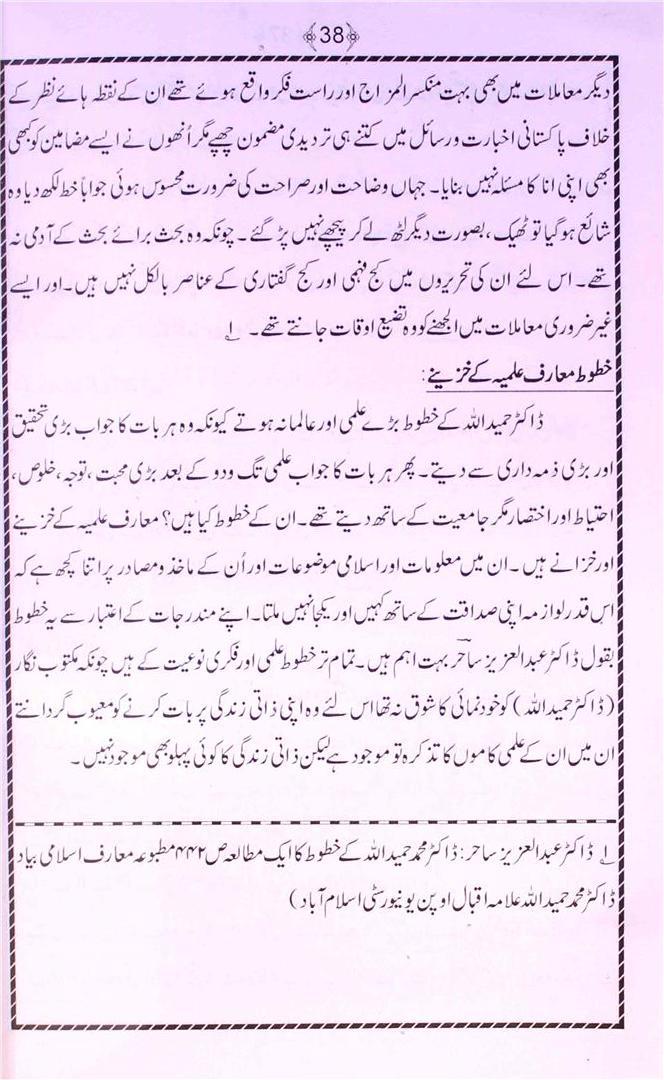 38
دیگر معاملات میں بھی بہت منکسر المزاج اور راست فکر واقع ہوئے تھے ان کے نقطہ ہائے نظر کے
خلاف پاکستانی اخبارت و رسائل میں کتنے ہی تردیدی مضمون چھپے مگر اُنھوں نے ایسے مضامین کو کبھی
بھی اپنی انا کا مسئلہ نہیں بنایا۔ جہاں وضاحت اور صراحت کی ضرورت محسوس ہوئی جواباً خط لکھ دیا وہ
شائع ہو گیا تو ٹھیک، بصورت دیگر لٹھ لے کر پیچھے نہیں پڑ گئے۔ چونکہ وہ بحث برائے بحث کے آدمی نہ
تھے۔ اس لئے ان کی تحریروں میں کج فہمی اور کج گفتاری کے عناصر بالکل نہیں ہیں۔ اور ایسے
غیر ضروری معاملات میں الجھنے کو وہ تضیع اوقات جانتے تھے۔ ۱؎
خطوط معارف علمیہ کے خزینے:
ڈاکٹر حمید اللہ کے خطوط بڑے علمی اور عالمانہ ہوتے کیونکہ وہ ہر بات کا جواب بڑی تحقیق
اور بڑی ذمہ داری سے دیتے۔ پھر ہر بات کا جواب علمی تگ ودو کے بعد بڑی محبت، توجہ، خلوص،
احتیاط اور اختصار مگر جامعیت کے ساتھ دیتے تھے۔ ان کے خطوط کیا ہیں؟ معارف علمیہ کے خزینے
اور خزانے ہیں۔ ان میں معلومات اور اسلامی موضوعات اور اُن کے ماخذ و مصادر پر اتنا کچھ ہے کہ
اس قدر لوازمہ اپنی صداقت کے ساتھ کہیں اور یکجا نہیں ملتا۔ اپنے مندرجات کے اعتبار سے یہ خطوط
بقول ڈاکٹر عبدالعزیز ساحؔر بہت اہم ہیں۔ تمام تر خطوط علمی اور فکری نوعیت کے ہیں چونکہ مکتوب نگار
(ڈاکٹر حمید اللہ) کو خود نمائی کا شوق نہ تھا اس لئے وہ اپنی ذاتی زندگی پر بات کرنے کو معیوب گردانتے
ان میں ان کے علمی کاموں کا تذکرہ تو موجود ہے لیکن ذاتی زندگی کا کوئی پہلو بھی موجود نہیں۔
۱؎ ڈاکٹر عبدالعزیز ساحر: ڈاکٹر محمد حمید اللہ کے خطوط کا ایک مطالعہ ص ۴۴۲ مطبوعہ معارف اسلامی بیاد
ڈاکٹر محمد حمید اللہ علامہ اقبال اوپن یونیورسٹی اسلام آباد)